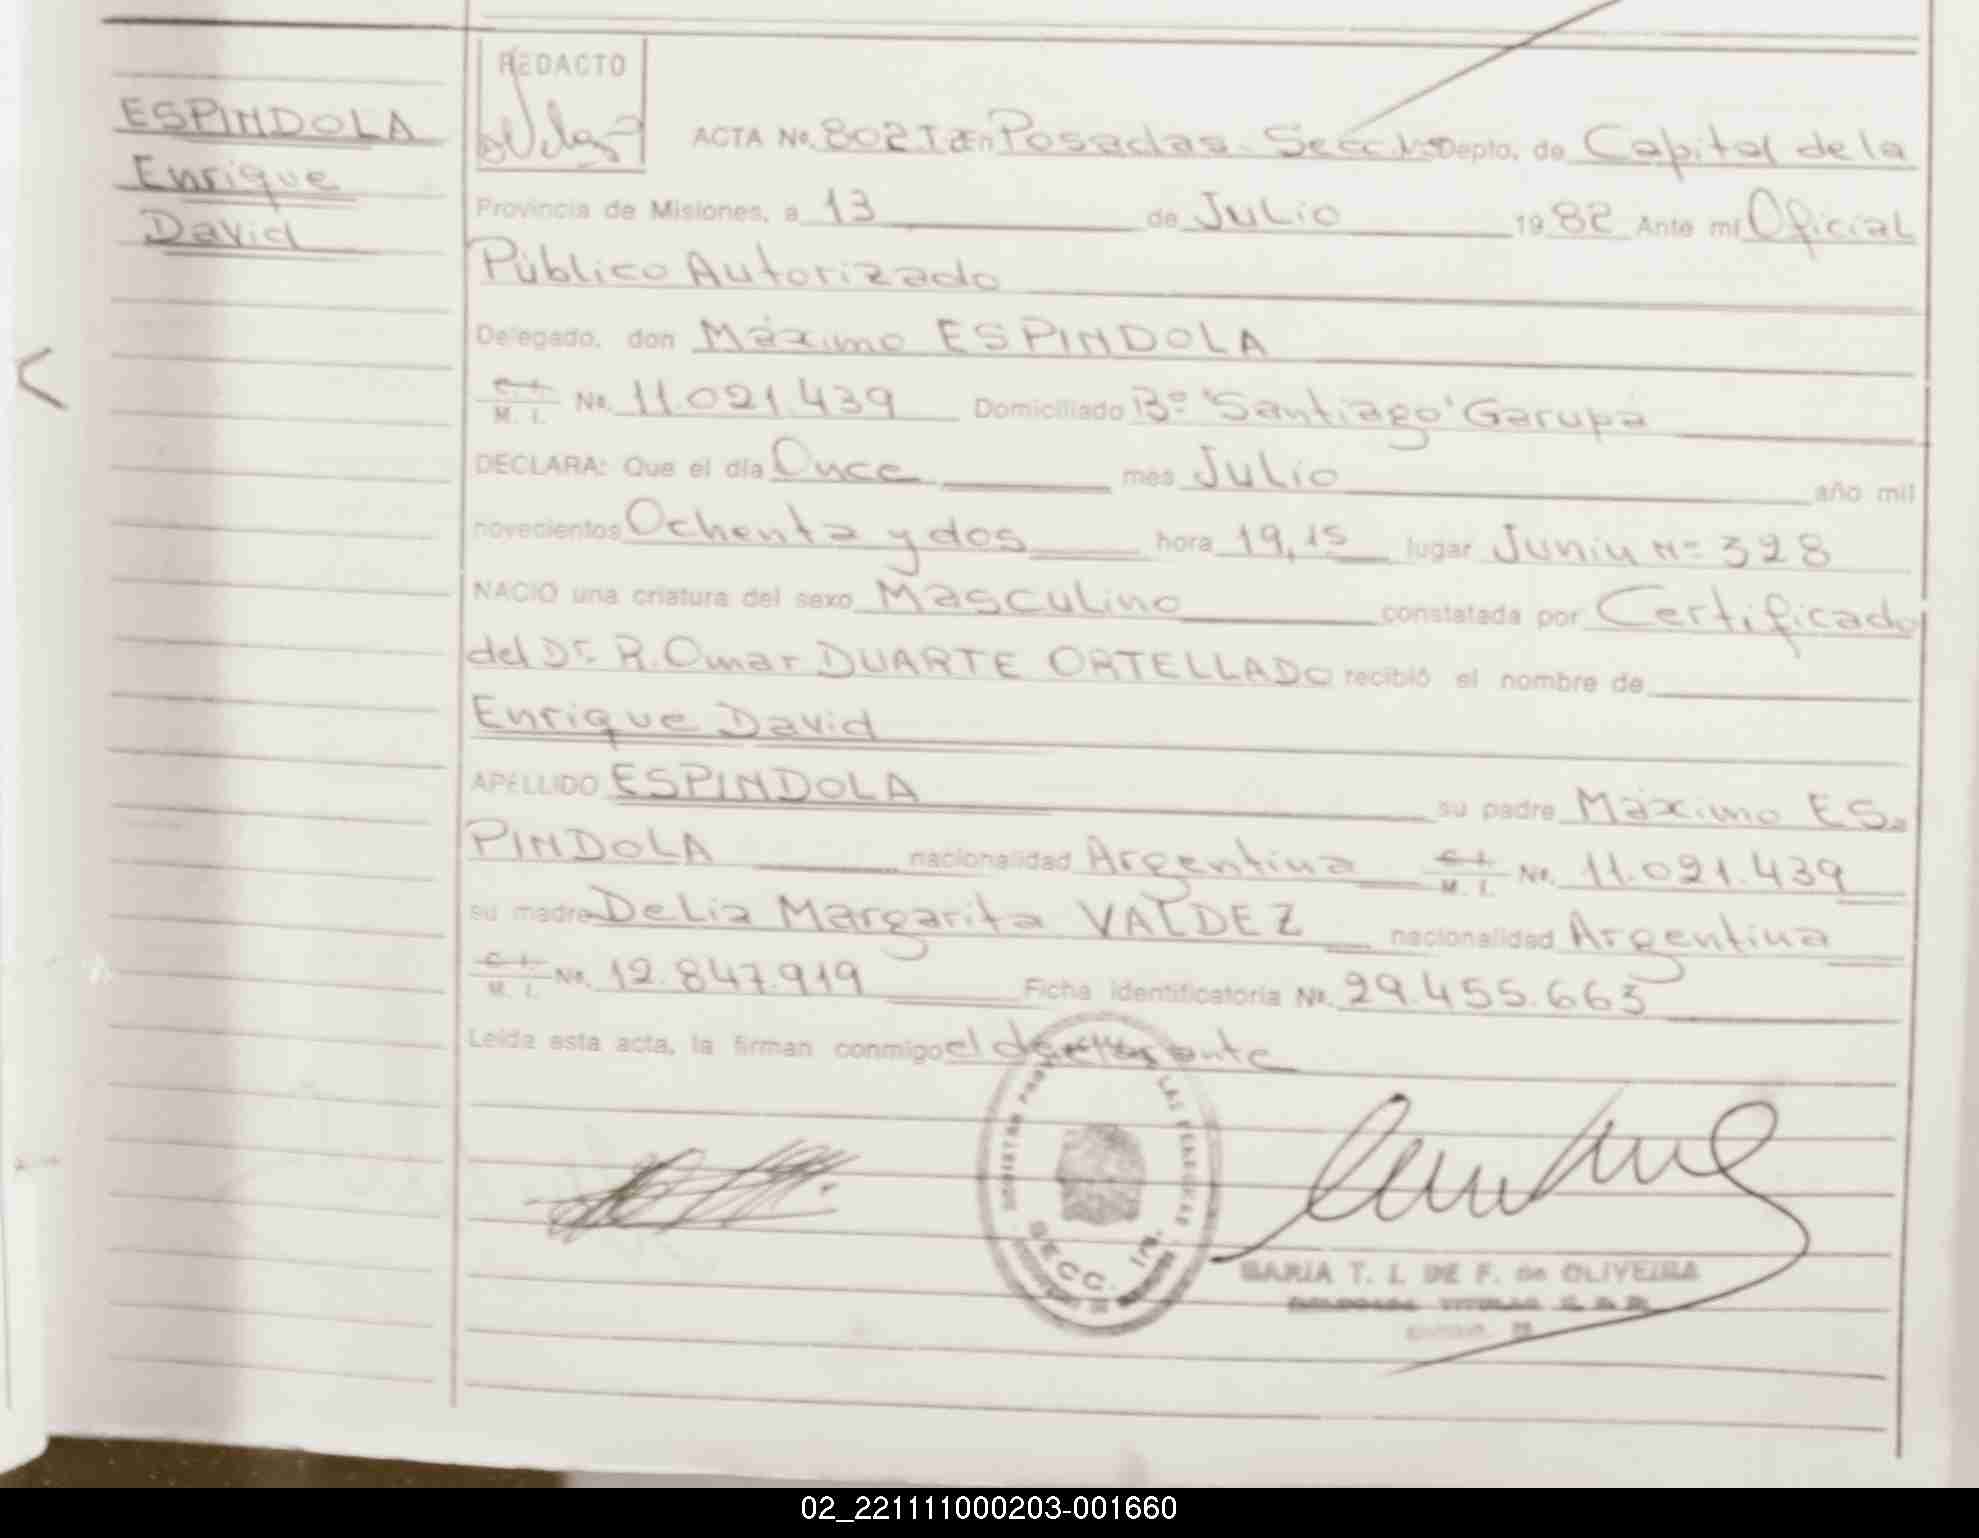 ESPINDOLA
Enrique
David
REDACTO
ACTA No. 802 T en Posadas Secc Depto. de Capital de la
Provincia de Misiones, a 13 de Julio 1982 Ante mí Oficial
Público Autorizado
Delegado, don Máximo ESPINDOLA
C. I. M. I. No. 11.021.439 Domiciliado Bº "Santiago" Garupa
DECLARA: Que el día Once mes Julio año mil
novecientos Ochenta y dos hora 19,15 lugar Junin Nº 328
NACIO una criatura del sexo Masculino constatada por Certificado
del Dr. R. Omar DUARTE ORTELLADO recibió el nombre de
Enrique David
APELLIDO ESPINDOLA su padre Máximo ES-
PINDOLA nacionalidad Argentina C. I. M. I. No. 11.021.439
su madre Delia Margarita VALDEZ nacionalidad Argentina
C. I. M. I. No. 12.847.919 Ficha identificatoria No. 29.455.663
Leída esta acta, la firman conmigo el declarante
SECC. 1ra.
MARIA T. I. DE F. de OLIVEIRA
02_221111000203-001660